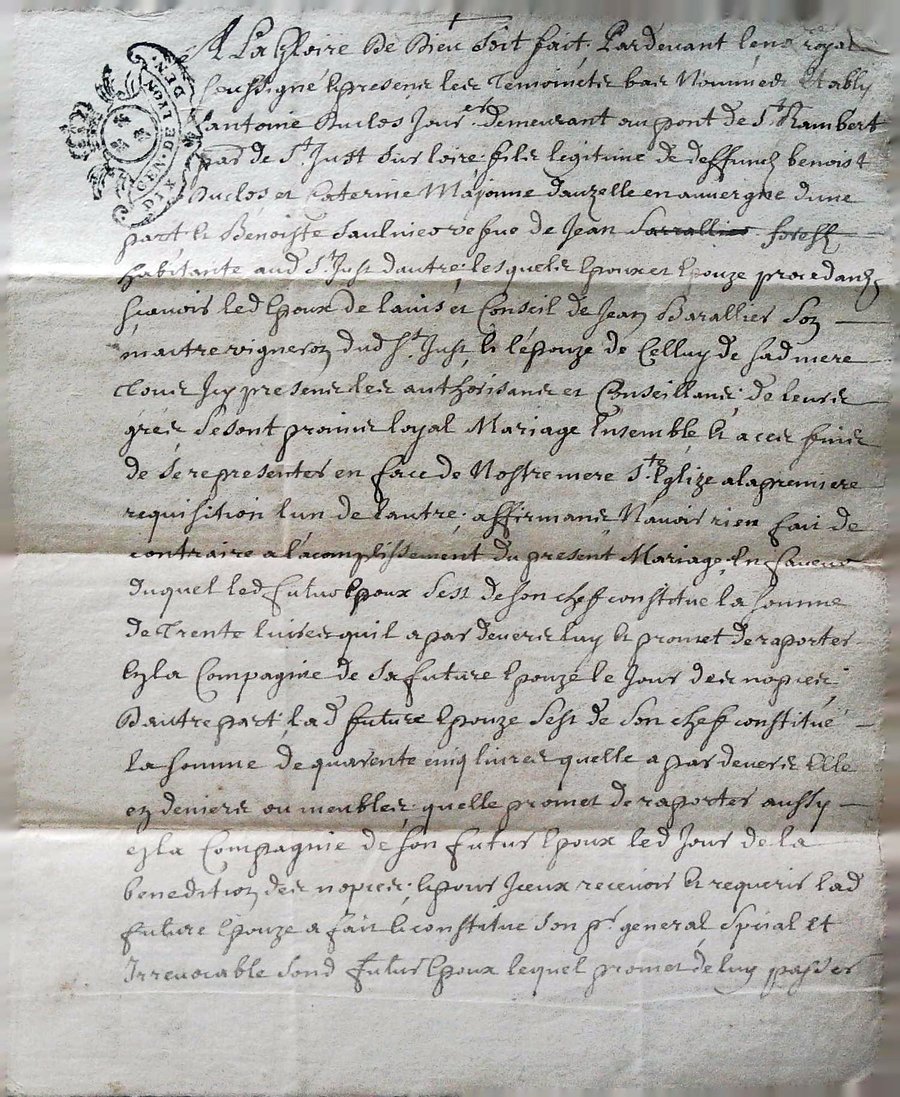 GEN. DE LYON.
DIX DEN.
A La Gloire De Dieu Soit fait, Pardevant le no.re royal
soussigné & presens les Temoins bas Nommés Etably
antoine Duclos Jour.er demeurant au pont de S.t Rambert
par. de S.t Just sur loire fils legitime de deffunct benoist
Duclos et Caterine d'auzelle en auvergne dune
part, & Benoiste Saulnier vefve de Jean
habitante aud S.t Just dautre, lesquels Epoux et Epouze procedans
sçavoir led Epoux de lavis et Conseil de Jean Barallier Son
maitre vigneron dud S.t Just & lépouze de Celluy de sad mere
Tous Icy presens les authorisans et Conseillans de leurs
grés, se sont promis loyal Mariage Ensemble & a ces fins
de se representer en face de Nostre mere S.te Eglize a la premiere
requisition lun de lautre, affirmans Navoir rien fait de
contraire a lacomplissement du present Mariage, En faveur
duquel led futur Epoux Sest de son chef constitué la somme
de Trente livres quil a par devers luy & promet de raporter
En la Compagnie de sa future Epouze le Jour des nopces
Dautre part, lad future Epouze Sest de Son chef constitué
La somme de quarente cinq livres quelle a par devers Elle
en deniers ou meubles, quelle promet de raporter aussy
en la Compagnie de son futur Epoux led Jour de la
benedition des nopces, & pour Iceux recevoir & requerir lad
future Epouze a fait & constitué Son pr. general, Spécial Et
Irrevocable Sond futur Epoux lequel promet de luy passer